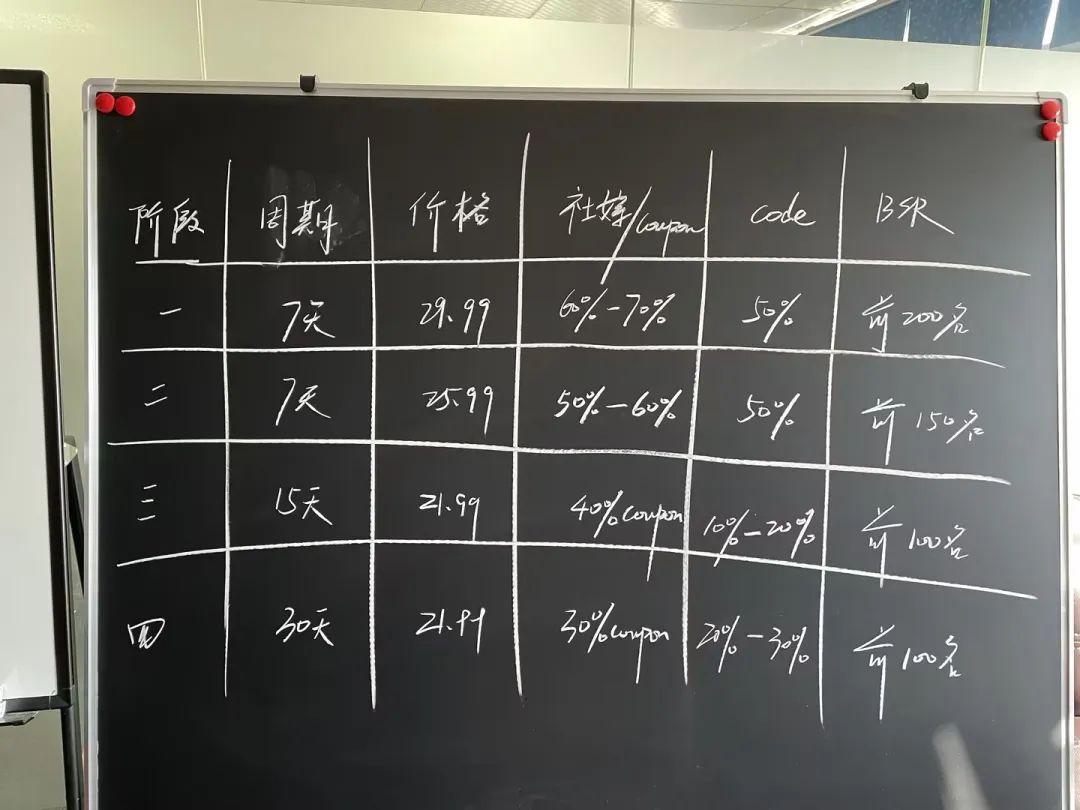 阶段 周期 价格 社媒/coupon code BSR
一 7天 29.99 60%-70% 50% 前200名
二 7天 25.99 50%-60% 50% 前150名
三 15天 21.99 40%coupon 10%-20% 前100名
四 30天 21.99 30%coupon 20%-30% 前100名